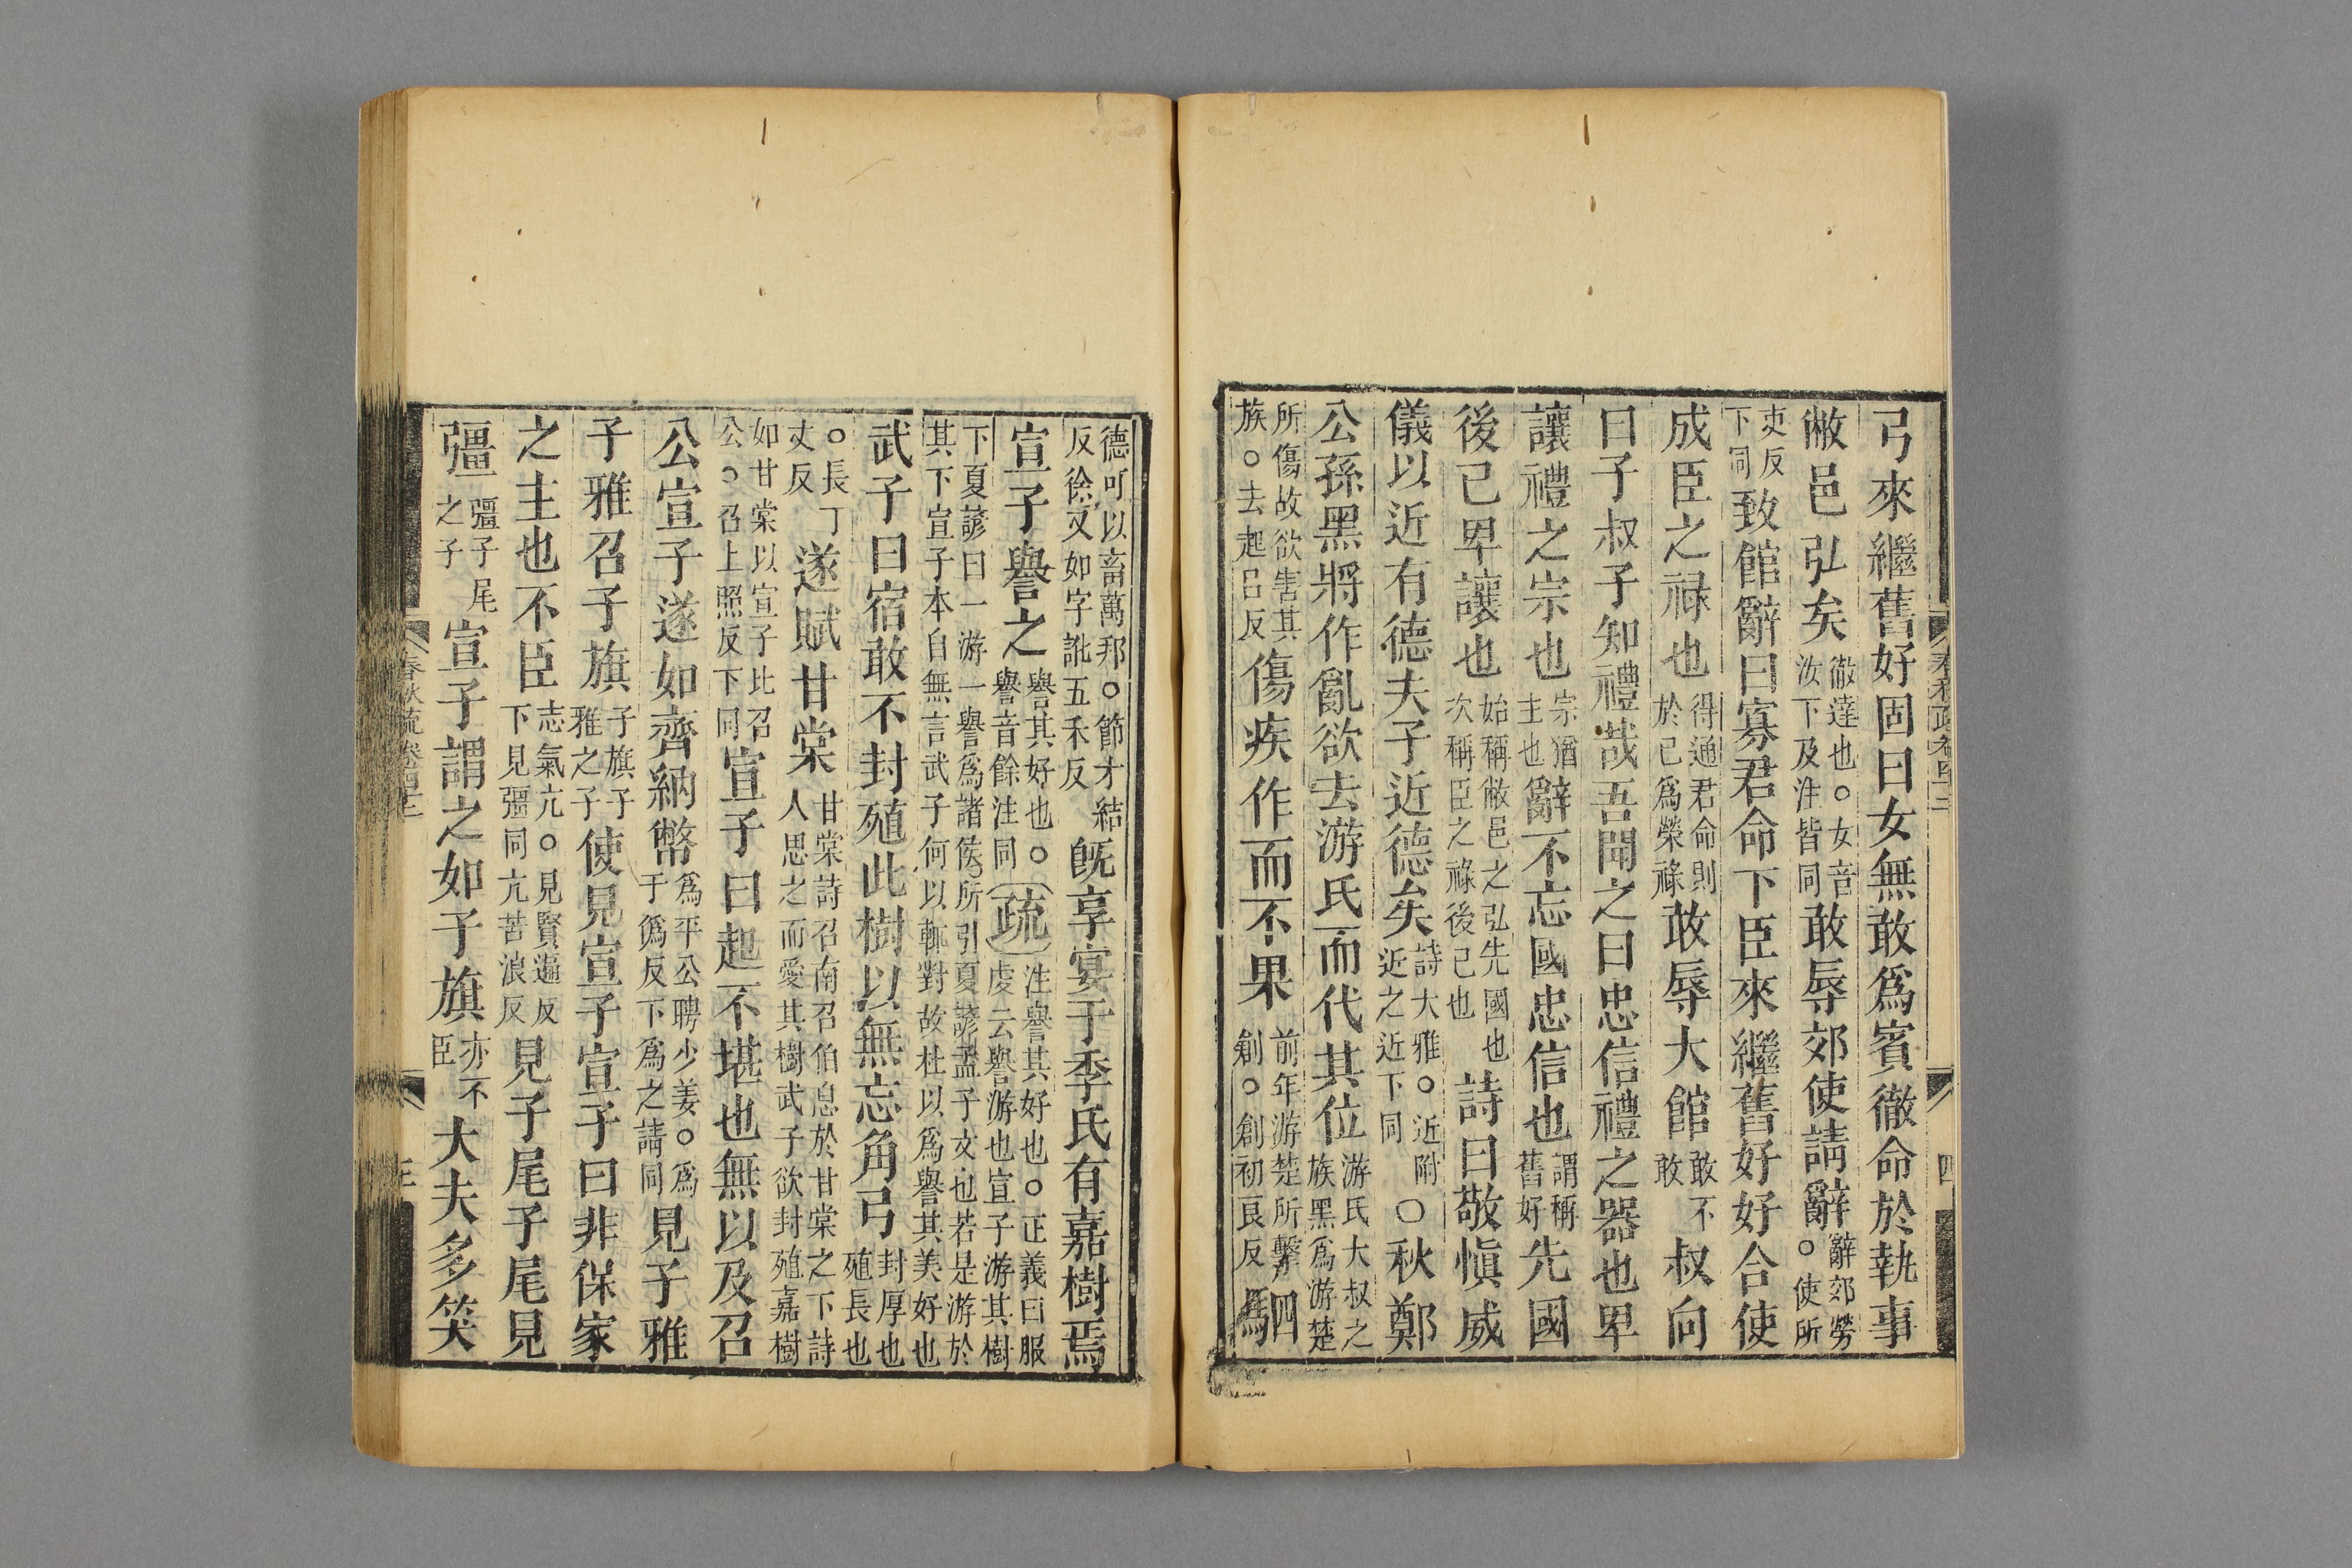 弓來繼舊好固曰女無敢爲賓徹命於執事
敝邑弘矣徹達也○女音汝下及注皆同敢辱郊使請辭辭郊勞○使所
吏反下同致館辭曰寡君命下臣來繼舊好好合使
成臣之禄也得通君命則於己爲榮祿敢辱大館敢不敢叔向
曰子叔子知禮哉吾聞之曰忠信禮之器也卑
讓禮之宗也宗猶主也辭不忘國忠信也謂稱舊好先國
後己卑讓也始稱敝邑之弘先國也次稱臣之祿後己也詩曰敬愼威
儀以近有德夫子近德矣詩大雅○近附近之近下同○秋鄭
公孫黑將作亂欲去游氏而代其位游氏大叔之族黑爲游楚
所傷故欲害其族○去起呂反傷疾作而不果前年游楚所擊創○創初良反駟
德可以畜萬邦○節才結反徐又如字訛五禾反旣享宴于季氏有嘉樹焉
宣子譽之譽其好也○譽音餘注同疏注譽其好也○正義曰服虔云譽游也宣子游其樹
下夏諺曰一游一譽爲諸侯所引夏諺孟子文也若是游於其下宣子本自無言武子何以輒對故杜以爲譽其美好也
武子曰宿敢不封殖此樹以無忘角弓封厚也殖長也
○長丁丈反遂賦甘棠甘棠詩召南召伯息於甘棠之下詩人思之而愛其樹武子欲封殖嘉樹
如甘棠以宣子比召公○召上照反下同宣子曰起不堪也無以及召
公宣子遂如齊納幣爲平公聘少姜○爲于僞反下爲之請同見子雅
子雅召子旗子旗子雅之子使見宣子宣子曰非保家
之主也不臣志氣亢○見賢遍反下見彊同亢苦浪反見子尾子尾見
彊彊子尾之子宣子謂之如子旗亦不臣大夫多笑
春秋疏卷四十二